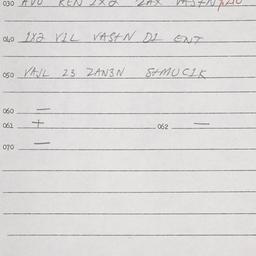 030 AVO KEN 1X2 ZAX VASTN
040 1X2 VIL VASTN DI ENT
050 VAJL 23 ZAN3N STMUCIK
060 —
061 + 062 —
070 —